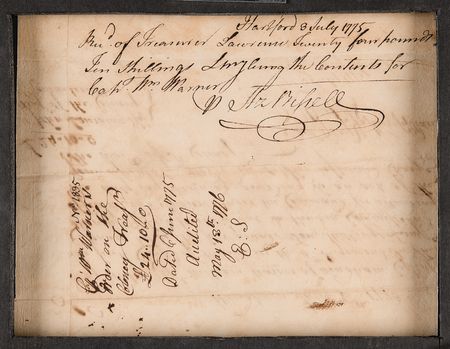 Hartford 3 July 1775
Recd. of Treasurer Lawrence Twenty four pounds
Ten Shillings being the Contents for
Capt. Wm Warner
P Az Bissell
No 1835
Ct Wm Warner's
Order on the
Colony Treasr
£24..10..0
Dated June 1775
Audited
May 13th 1776